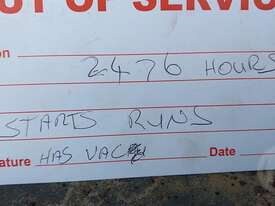 OUT OF SERVIC
ion 2476 HOURS
STARTS RUNS
nature HAS VAC Date